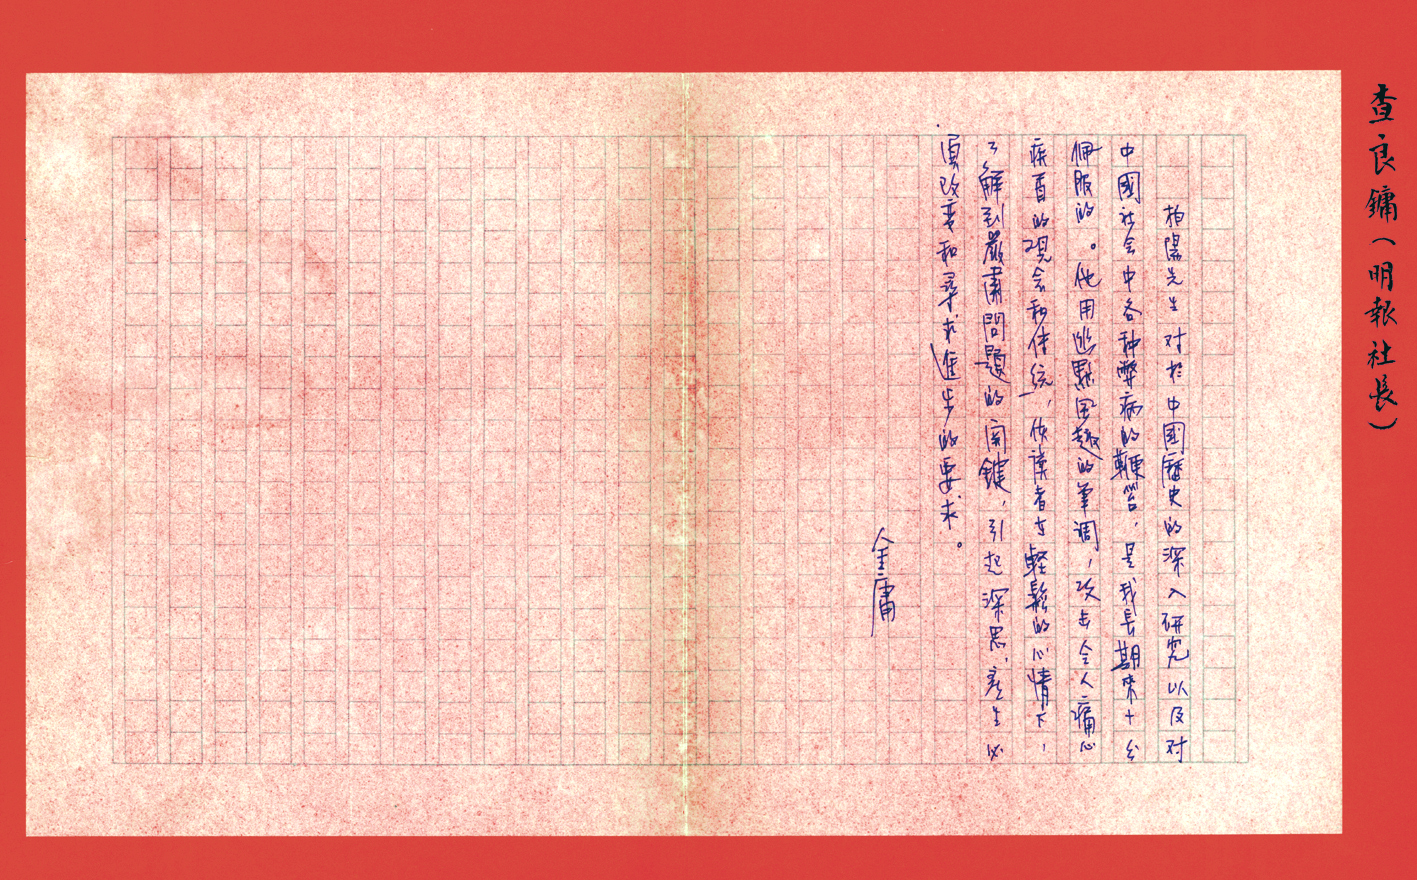 查良鏞（明報社長）
柏陽先生对於中國歷史的深入研究以及对
中國社会中各种弊病的鞭笞，是我長期來十分
佩服的。他用幽默風趣的筆調，攻击令人痛心
疾首的观念和传統，使讀者在輕鬆的心情下，
了解到嚴肅問題的関鍵，引起深思，產生必
須改变和尋求進步的要求。
金庸